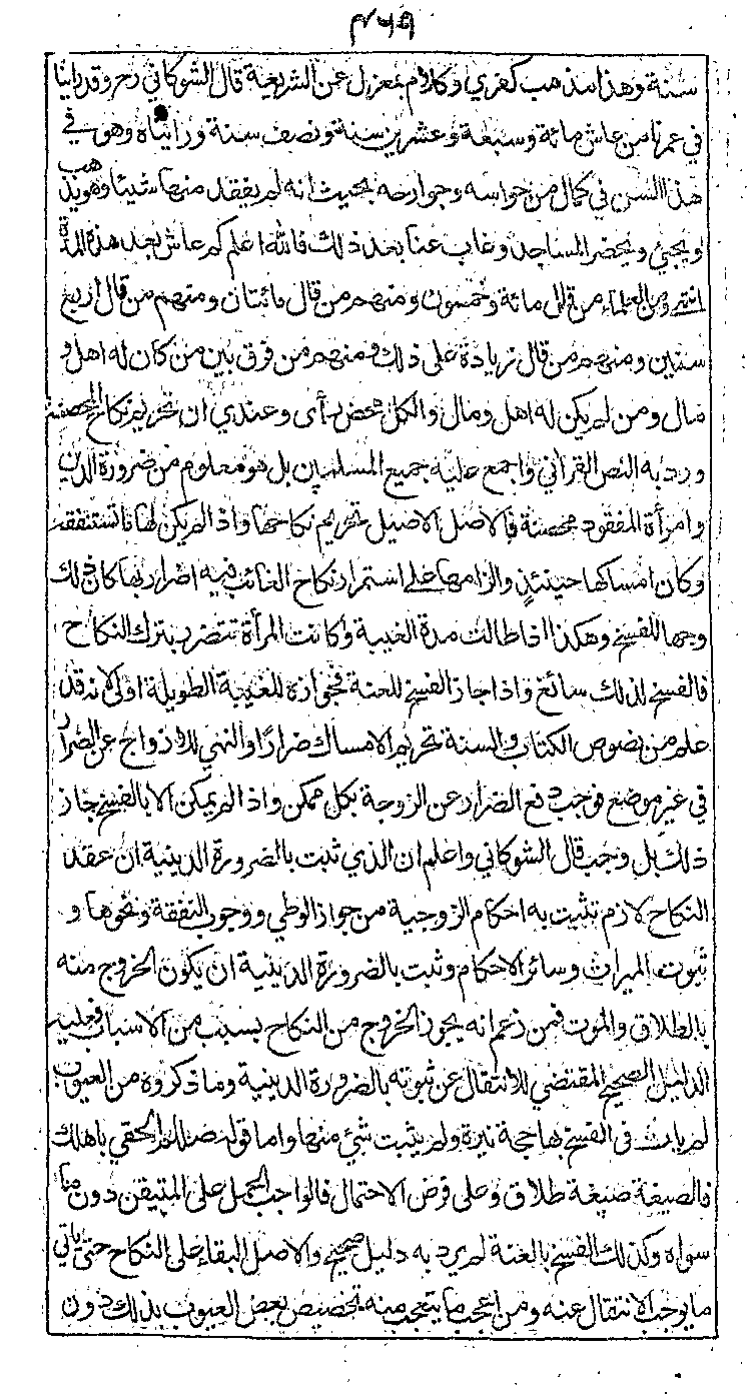 ۴۶۹
سنة وهذا مذهب كفري وكلام بمعزل عن الشريعة قال الشوكاني رح وقد راينا
في عمرنا من عاش مائة وسبعة وعشرين سنة ونصف سنة وراينا وهو في
هذا السن في كمال من حواسه وجوارحه بحيث انه لم يفقد منها شيئا وهو يذهب
ويجئ ويحضر المساجد وغاب عنا بعد ذلك فالله اعلم كم عاش بعد هذه المدة
انتهى ومن العلماء من قال مائة وخمسون ومنهم من قال مائتان ومنهم من قال اربع
سنين ومنهم من قال زيادة على ذلك ومنهم من فرق بين من كان له اهل و
مال ومن لم يكن له اهل ومال والكل محض رأى وعندي ان تحريم نكاح المحصنة
ورد به النص القرآني واجمع عليه جميع المسلمين بل هو معلوم من ضرورة الدين
وامرأة المفقود محصنة فالاصل الاصيل تحريم نكاحها واذا لم يكن لها ما تستنفقه
وكان امساكها حينئذ والزامها على استمرار نكاح الغائب فيه اضرار بها كان ذلك
وجها للفسخ وهكذا اذا طالت مدة الغيبة وكانت المرأة تتضرر بترك النكاح
فالفسخ لذلك سائغ واذا جاز الفسخ للعنة فجوازه للغيبة الطويلة اولى لانه قد
علم من نصوص الكتاب والسنة تحريم الامساك ضرارًا والنهي للازواج عن الضرار
في غير موضع فوجب دفع الضرار عن الزوجة بكل ممكن واذا لم يمكن الا بالفسخ جاز
ذلك بل وجب قال الشوكاني واعلم ان الذي ثبت بالضرورة الدينية ان عقد
النكاح لازم تثبت به احكام الزوجية من جواز الوطي ووجوب النفقة ونحوها و
ثبوت الميراث وسائر الاحكام وثبت بالضرورة الدينية ان يكون الخروج منه
بالطلاق والموت فمن زعم انه يجوز الخروج من النكاح بسبب من الاسباب فعليه
الدليل الصحيح المقتضي للانتقال عن ثبوته بالضرورة الدينية وما ذكروه من العيوب
لم يات في الفسخ بها حجة نيرة ولم يثبت شئ منها واما قوله صللم الحقي باهلك
فالصيغة صيغة طلاق وعلى فرض الاحتمال فالواجب الحمل على المتيقن دون ما
سواه وكذلك الفسخ بالعنة لم يرد به دليل صحيح والاصل البقاء على النكاح حتى ياتي
ما يوجب الانتقال عنه ومن اعجب ما يتعجب منه تخصيص بعض العيوب بذلك دون